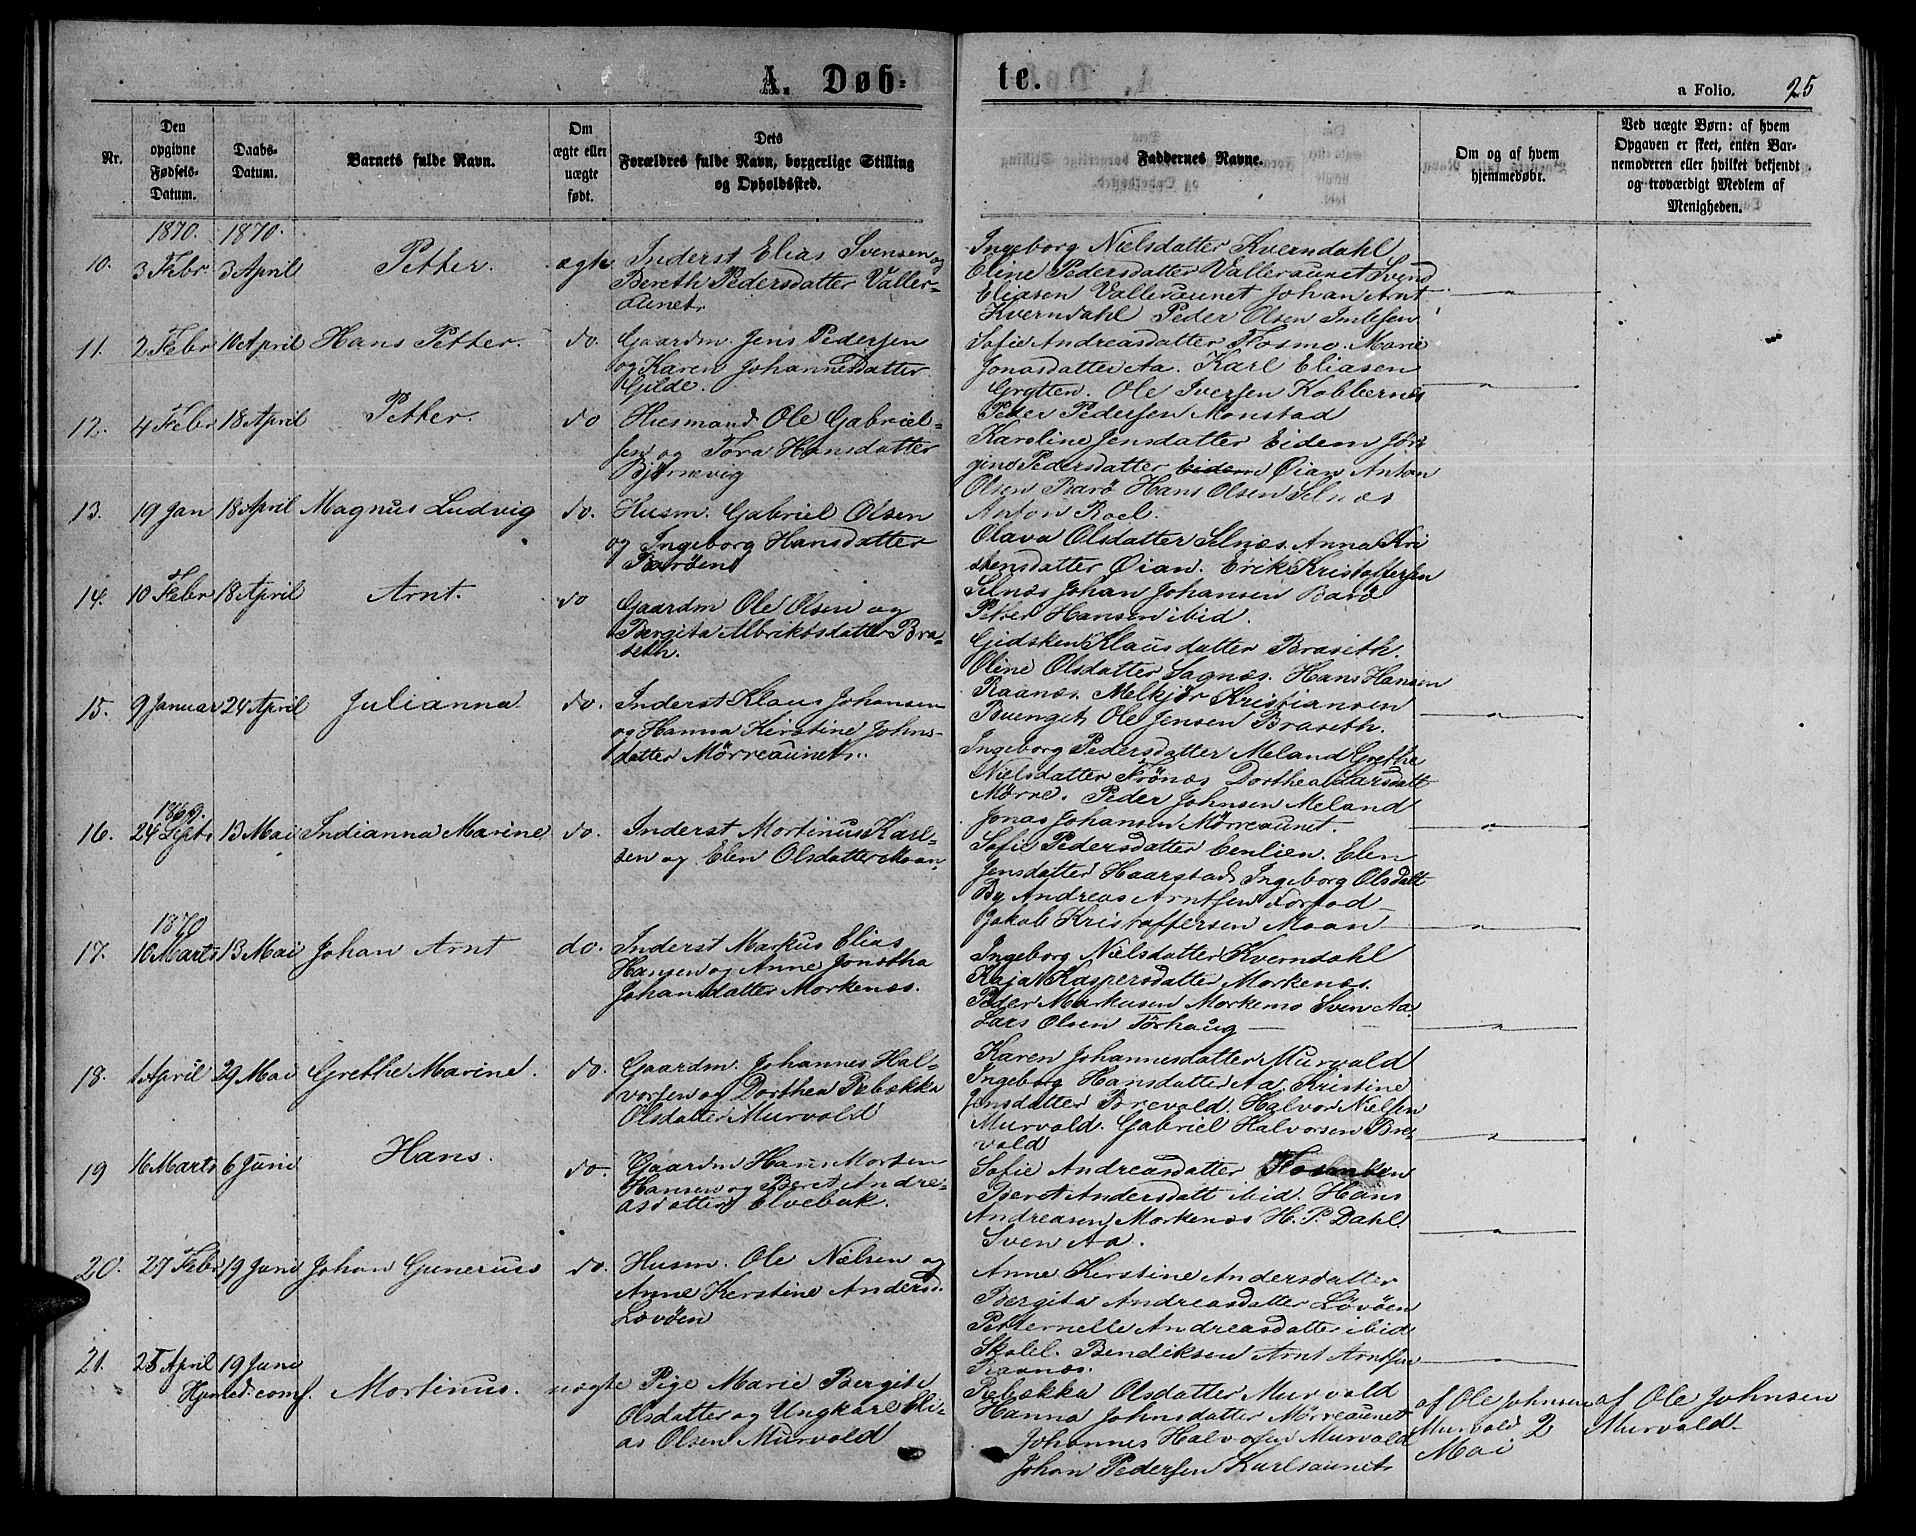 A. Døb-
te.
a Folio. 25
Nr.
Den opgivne Fødsels-Datum.
Daabs-Datum.
Barnets fulde Navn.
Om ægte eller uægte født.
Dets Forældres fulde Navn, borgerlige Stilling og Opholdssted.
Faddernes Navne.
Om og af hvem hjemmedøbt.
Ved uægte Børn: af hvem Opgaven er skeet, enten Barnemoderen eller hvilket bekjendt og troværdigt Medlem af Menigheden.
1870. 1870.
10. 3 Febr 3 April Petter. ægte Inderst Elias Svensen og
Bereth Pedersdatter Valler-
aunet.
Ingeborg Nielsdatter Kverndahl
Eline Pedersdatter Valleraunet Svend
Eliasen Valleraunet Johan Arnt
Kverndahl Peder Olsen
11. 2 Febr 10 April Hans Petter. do. Gaardm. Jens Pedersen
og Karen Johannesdatter
Gilde.
Sofie Andreasdatter Flosmo. Marie
Jonasdatter Aa. Karl Eliasen
Grytten. Ole Iversen Kobbernes
Peder Pedersen Monstad
12. 4 Febr 18 April Petter. do Husmand Ole Gabriel-
sen og Tora Hansdatter
Bjørnevig
Karoline Jensdatter Eidem Jør
gine Pedersdatter Eidem Øian Anton
Olsen Barø Hans Olsen Selnæs
Anton Roel.
13. 19 Jan 18 April Magnus Ludvig do. Husm. Gabriel Olsen
og Ingeborg Hansdatter
Barøen
Olava Olsdatter Selnæs. Anna Kri
stensdatter Øian. Erik Kristoffersen
Selnæs Johan Johansen Barø
Petter Hansen ibid.
14. 10 Febr 18 April Arnt. do Gaardm Ole Olsen og
Bergita Albriktsdatter Bra-
seth.
Gidsken Klausdatter Braseth.
Oline Olsdatter Sagnæs. Hans Hansen
Raanæs. Melkjør Kristiansen
Buenget, Ole Jensen Braseth.
15. 9 Januar 24 April Julianna do. Inderst Klaus Johansen
og Hanna Kirstine Johns-
datter Mørreaunet.
Ingeborg Pedersdatter Meland Grethe
Nielsdatter Frønæs Dorthea Larsdatt
Mørre. Peder Johnsen Meland
Jonas Johansen Mørreaunet.
1869.
16. 24 Septr 13 Mai Indianna Marine do. Inderst Mortinus Karl-
sen og Elen Olsdatter Moan
Sofie Pedersdatter Eenlien. Elen
Jensdatter Haarstad, Ingeborg Olsdatt
By Andreas Arntsen Forfod
Jakob Kristoffersen Moan
1870
17. 10 Marts 13 Mai Johan Arnt do. Inderst Markus Elias
Hansen og Anne Jonetha
Johansdatter Morkenæs.
Ingeborg Nielsdatter Kverndahl
Kaja Kaspersdatter Morkenæs.
Peder Markusen Morkemo Sven Aa.
Lars Olsen Tørhaug
18. 1 April 29 Mai Grethe Marine. do. Gaardm. Johannes Hal-
vorsen og Dorthea Rebækka
Olsdatter Murvold
Karen Johannesdatter Murvold
Ingeborg Hansdatter Aa. Kristine
Jensdatter Brevold. Halvor Nielsen
Murvold. Gabriel Halvorsen Bre-
vold
19 16 Marts 6 Juni Hans. do. Gaardm Hans Morten
Hansen og Beret Andre-
asdatter Elvebak.
Sofie Andreasdatter
Beret Andersdatt ibid. Hans
Andreasen Morkenæs H. P. Dahl.
Sven Aa.
20. 27 Febr 19 Juni Johan Gunerius do. Husm. Ole Nielsen og
Anne Kerstine Andersd.
Lovøen
Anne Kerstine Andersdatter
Bergita Andreasdatter Løvøen
Petternelle Andreasdatter ibid
Skolel. Bendiksen Arnt Arntsen
Raanæs.
21. 25 April 19 Juni
Hjemmed. comf. Mortinus. uægte Pige Marie Bergite
Olsdatter og Ungkarl Eli-
as Olsen Murvold
Rebækka Olsdatter Murvold
Hanna Johnsdatter Mørreaunet
Johannes Halvorsen Murvold
Johan Pedersen Karlsaunet.
af Ole Johnsen
Murvold 2
Mai
af Ole Johnsen
Murvold